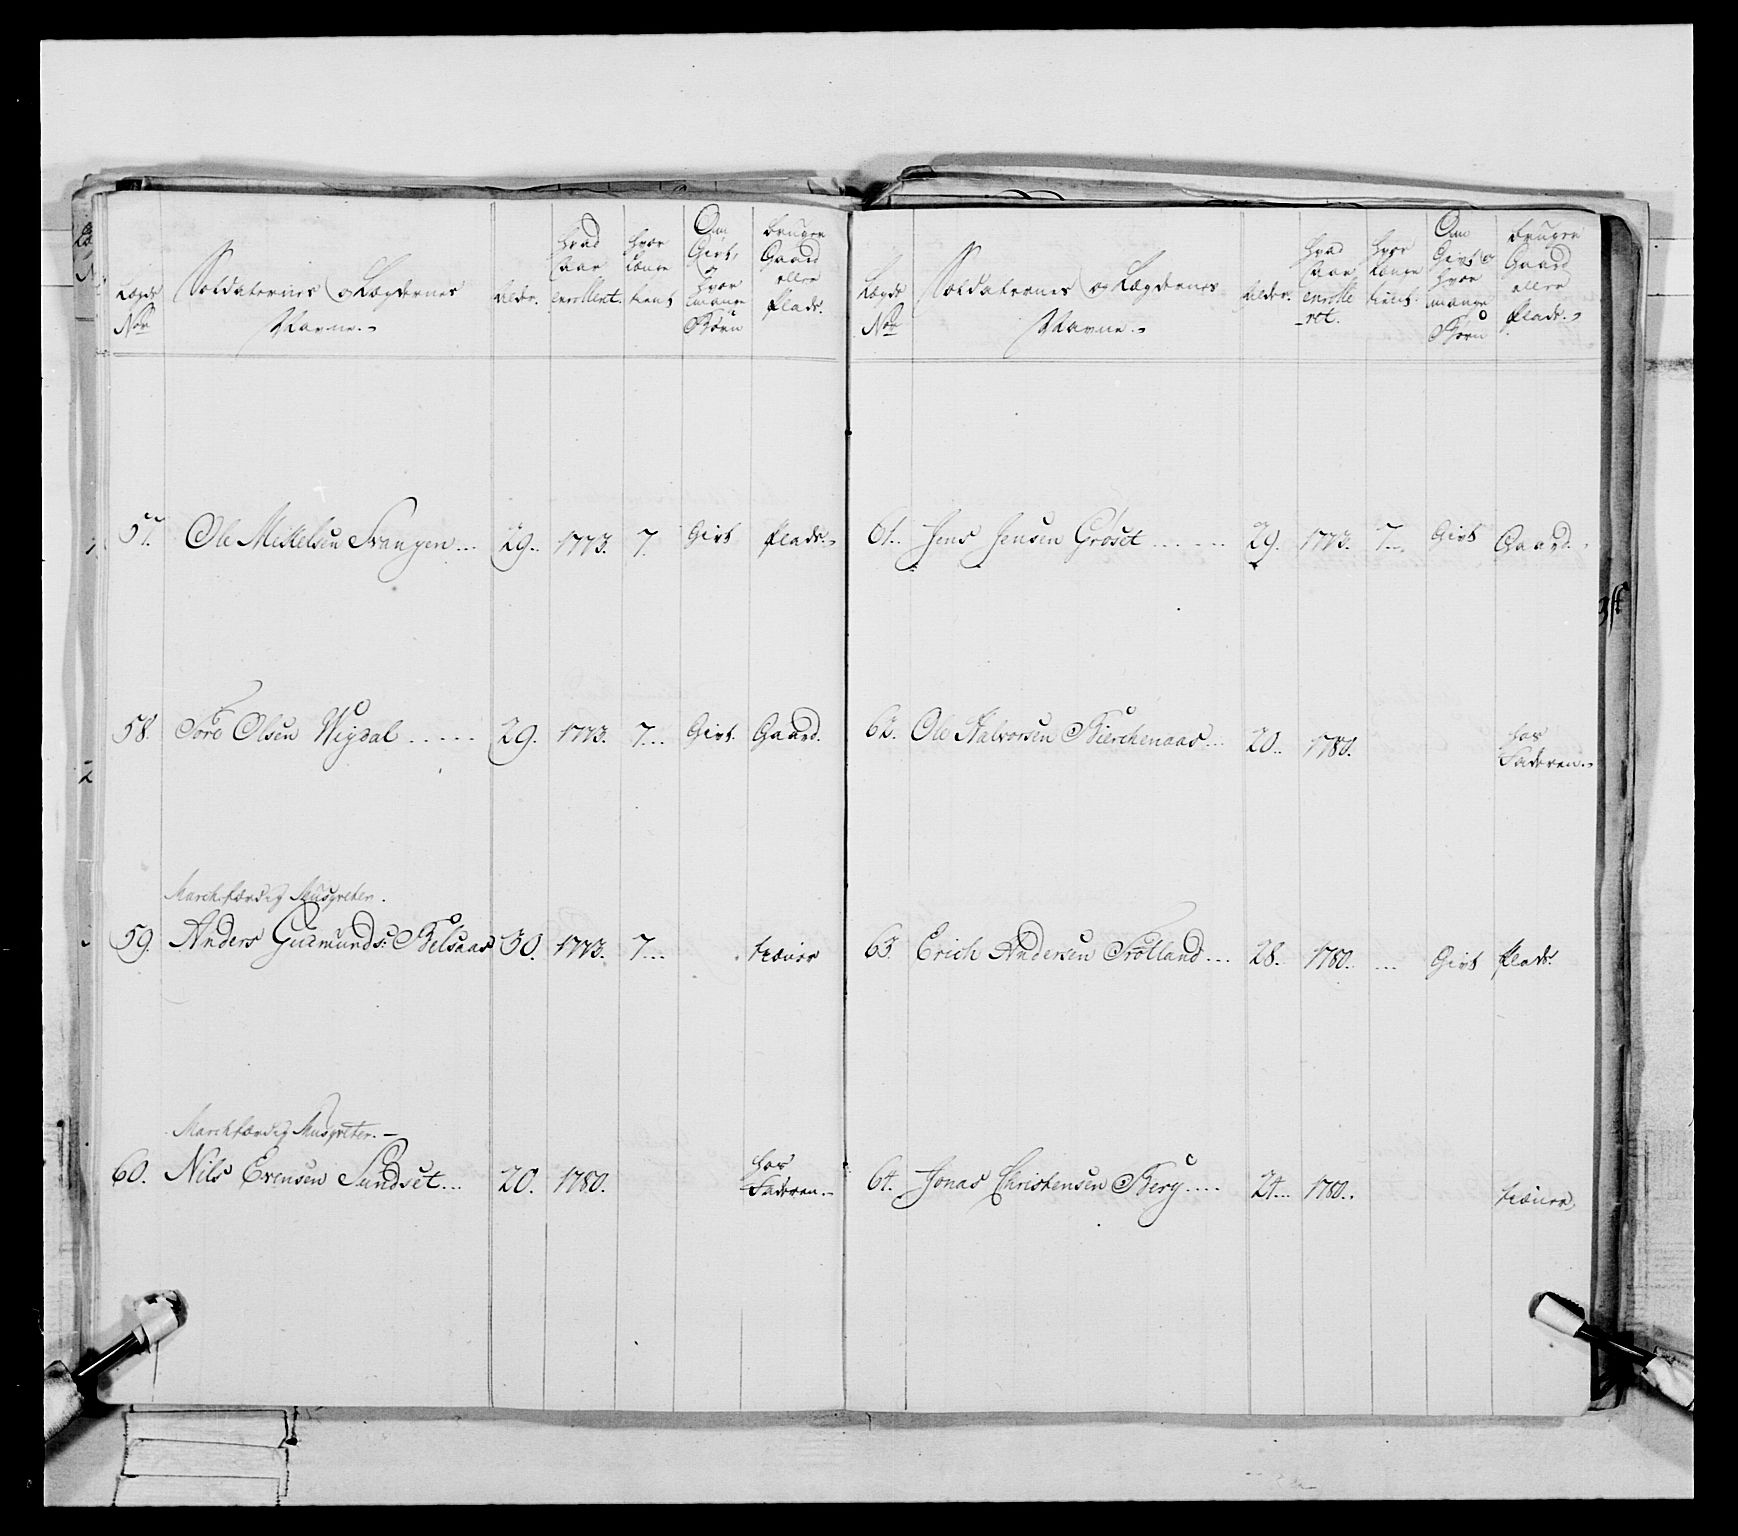 Lægds No Soldaternes og Lægdernes Navne.- Alder. hvad Aar enrollert. hvor Længe tient Om Givt, og hvor mange Børn bruger Gaard eller Plads.
57. Ole Mikkelsen Svangen... 29.. 1773. 7. Givt Plads.-
58. Tore Olsen Wigdal ..... 29. 1773. 7... Givt. Gaard.
Marchfærdig Musqveter.
59. Anders Gudmunds: Belsaas 30. 1773. 7... tiæner
Marchfærdig Musqveter.-
60. Nils Evensen Sundset... 20. 1780. hos
Faderen.-
Lægds No Soldaternes og Lægdernes Navne.- Alder. hvad Aar enrolle-ret. hvor Længe tient. Om Givt og hvor mange Børn bruger Gaard eller Plads.-
61.. Jens Jensen Grøset ...... 29. 1773. 7... Givt Gaard.-
62. Ole Halvorsen Bierchenaas... 20.. 1780. hos
Faderen.-
63. Erich Andersen Trøtland... 28. 1780. ... Givt Plads.
64. Jonas Christensen Berg.... 24... 1780.. tiæner